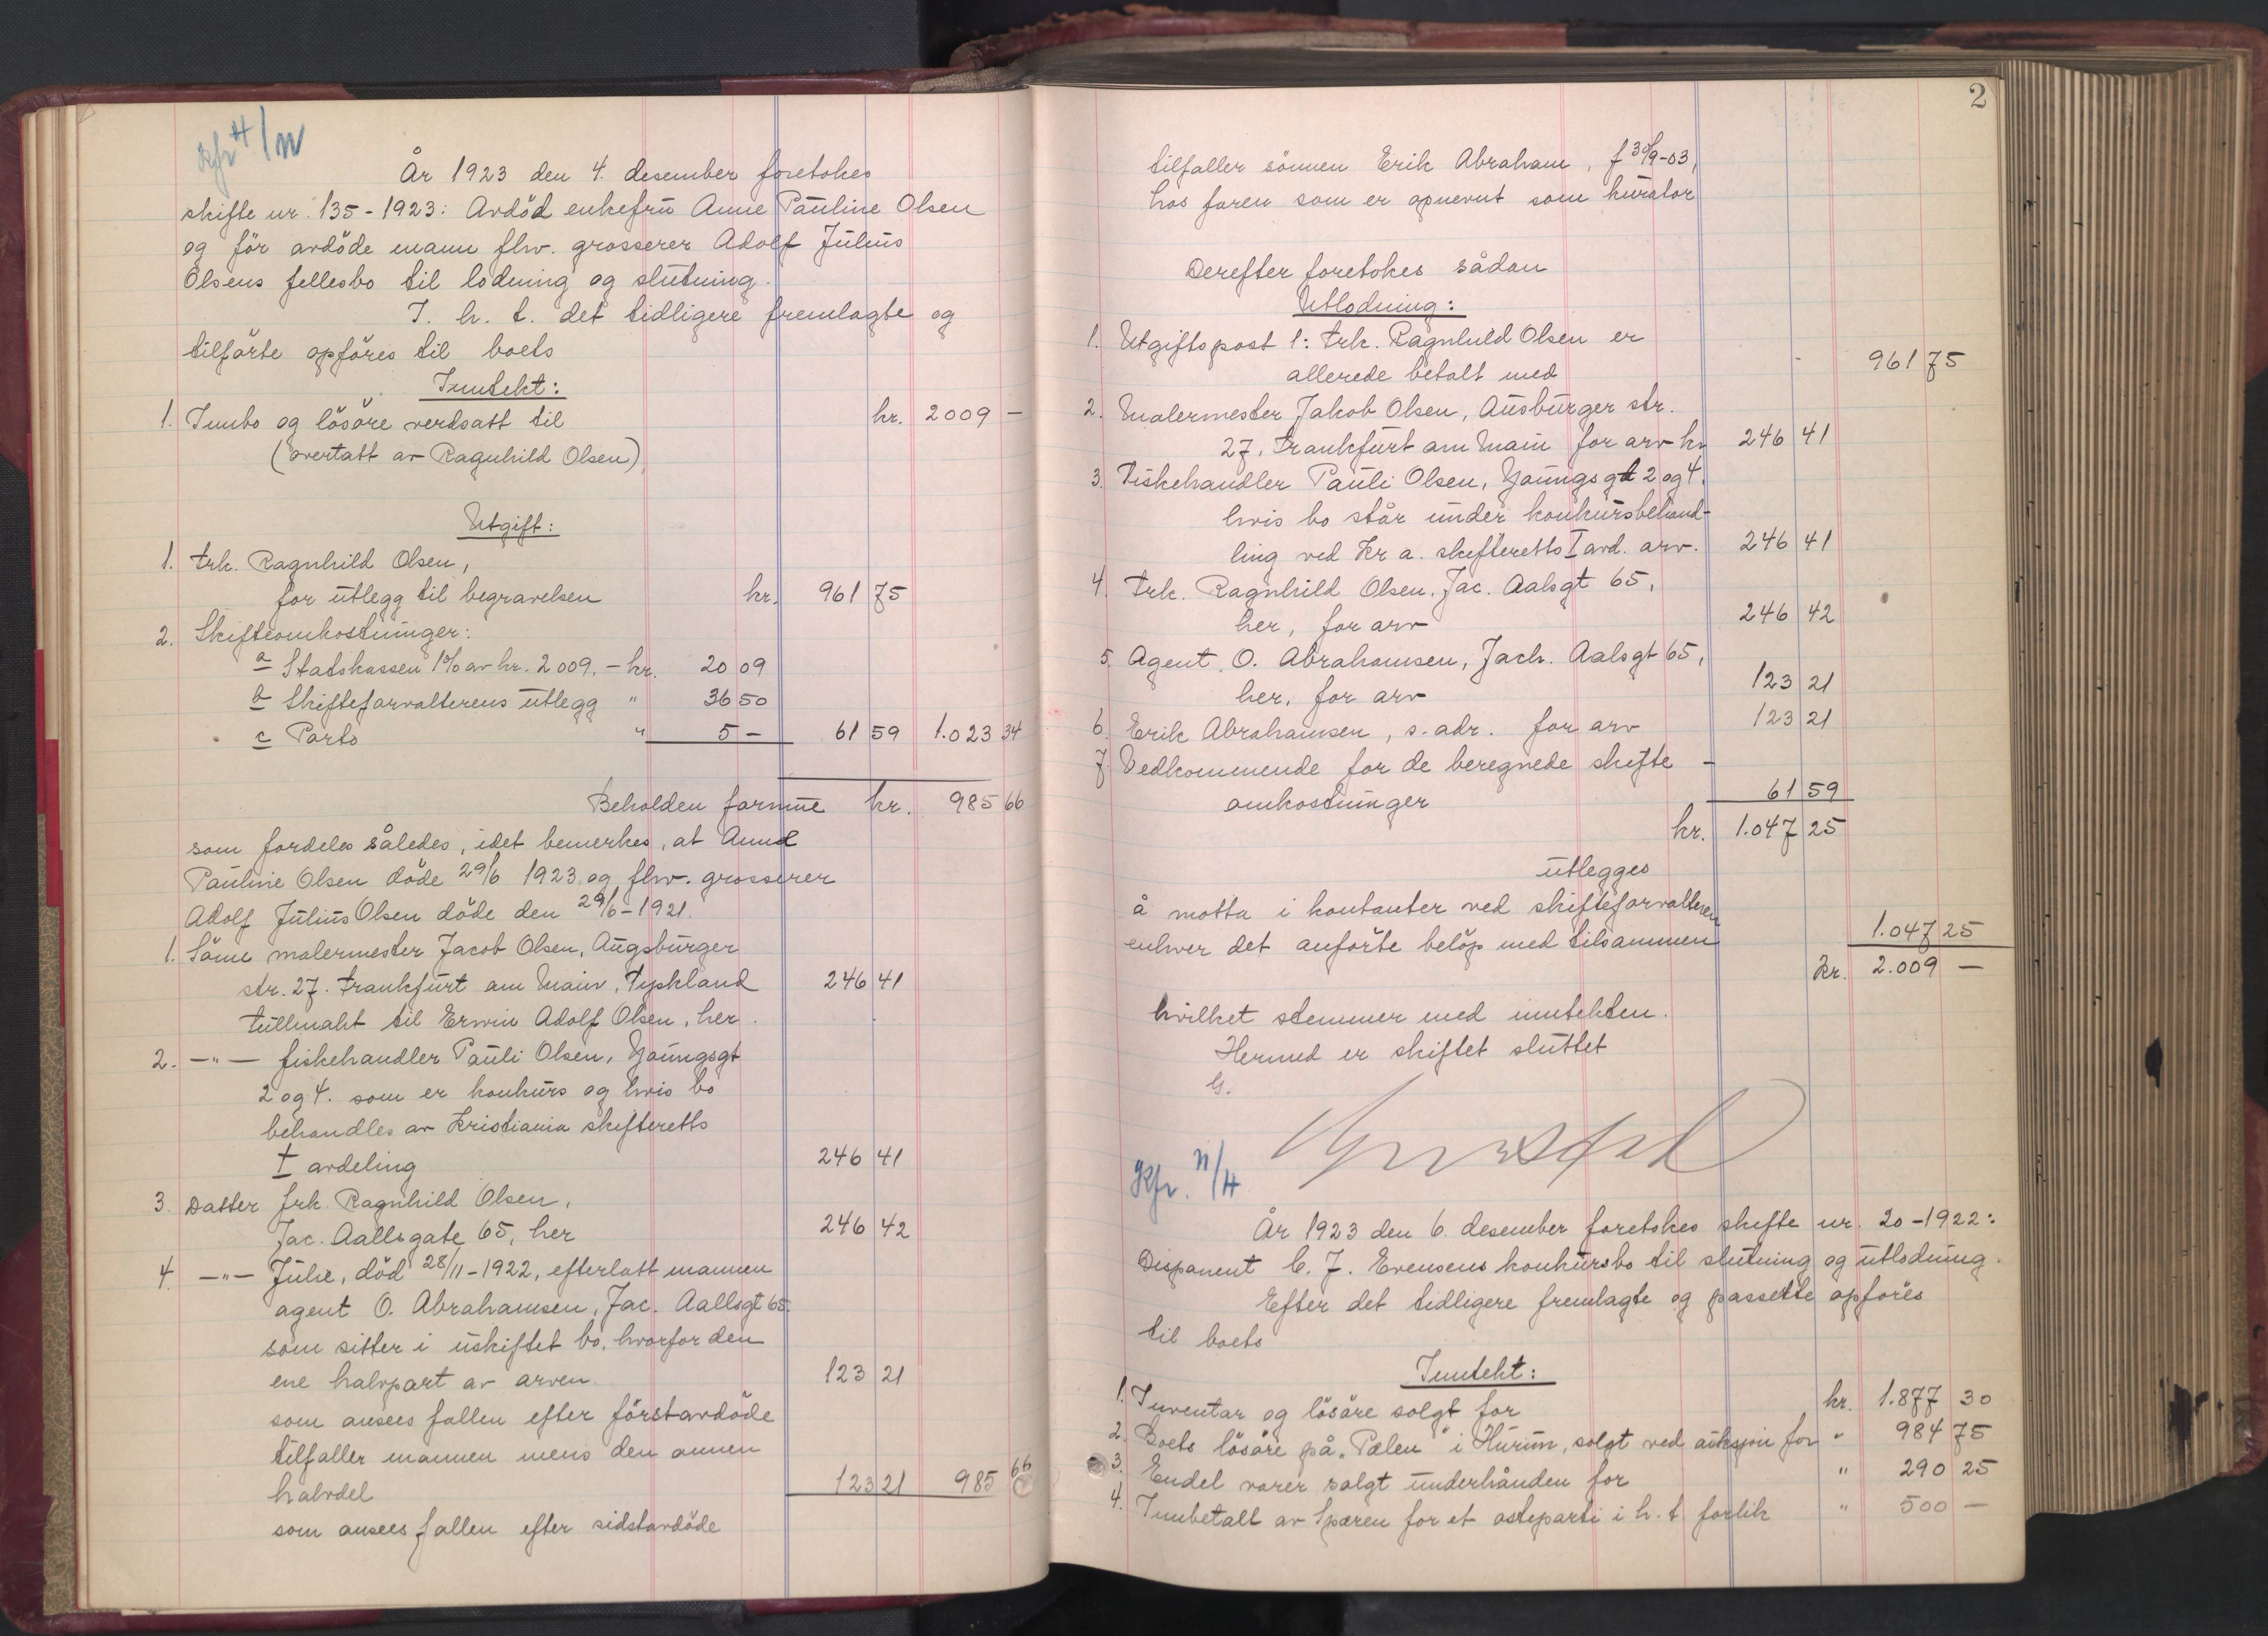 Kfr H/N
År 1923 den 4. desember foretokes
skifte nr. 135-1923: Avdöd enkefru Anne Pauline Olsen
og för avdöde mann fhv. grosserer Adolf Julius
Olsens fellesbo til lodning og slutning.
I. h. t. det tidligere fremlagte og
tilförte opföres til boets
Inntekt:
1. Innbo og lösöre verdsatt til kr. 2009 —
(overtatt av Ragnhild Olsen)
Utgift:
1. Frk. Ragnhild Olsen,
for utlegg til begravelsen kr. 961 75
2. Skifteomkostninger:
a Statskassen 1% av kr. 2009.- kr. 20 09
b Skifteforvalterens utlegg " 36 50
c Porto " 5 - 61 59 1.023 34
Beholden formue kr. 985 66
som fordeles således, idet bemerkes, at Anne
Pauline Olsen döde 29/6 1923 og fhv. grosserer
Adolf Julius Olsen döde den 29/6-1921.
1. Sönn malermester Jacob Olsen, Augsburger
str. 27. Frankfurt am Main, Tyskland 246 41
Fullmakt til Erwin Adolf Olsen, her.
2. —"— fiskehandler Pauli Olsen, Youngsgt
2 og 4. som er konkurs og hvis bo
behandles av Kristiania skifteretts
I avdeling 246 41
3. Datter frk. Ragnhild Olsen,
Jac. Aallsgate 65, her 246 42
4 —"— Julie, död 28/11-1922, efterlatt mannen
agent O. Abrahamsen, Jac. Aallsgt 65.
som sitter i uskiftet bo, hvorfor den
ene halvpart av arven 123 21
som ansees fallen efter förstavdöde
tilfaller mannen mens den annen
halvdel 123 21 985 66
som ansees fallen efter sidstavdöde
2
tilfaller sönnen Erik Abraham, f 30/9-03,
hos faren som er opnevnt som kurator
Derefter foretokes sådan
Utlodning:
1. Utgiftspost 1: Frk. Ragnhild Olsen er
allerede betalt med 961 75
2. Malermester Jakob Olsen, Ausburger str.
27. Frankfurt am Main for arv kr 246 41
3. Fiskehandler Pauli Olsen, Youngsgt 2 og 4.
hvis bo står under konkursbehand-
ling ved Kr a. skifteretts I avd. arv. 246 41
4. Frk. Ragnhild Olsen, Jac. Aalsgt 65,
her, for arv 246 42
5. Agent O. Abrahamsen, Jach. Aalsgt 65,
her, for arv 123 21
6. Erik Abrahamsen, s. adr. for arv 123 21
7. Vedkommende for de beregnede skifte -
omkostninger 61 59
kr. 1.047 25
utlegges
å motta i kontanter ved skifteforvalteren
enhver det anförte belöp med tilsammen 1.047 25
Kr. 2.009 —
hvilket stemmer med inntekten.
Hermed er skiftet sluttet
G.
Kfr. N/H
År 1923 den 6. desember foretokes skifte nr. 20-1922:
Disponent C. J. Evensens konkursbo til slutning og utlodning.
Efter det tidligere fremlagte og passerte opföres
til boets
Inntekt:
1. Inventar og lösöre solgt for kr. 1.877 30
2. Boets lösöre på „Pælen" i Hurum, solgt ved auksjon for " 984 75
3. Endel varer solgt underhånden for " 290 25
4. Innbetalt av Spæren for et osteparti i h. t. forlik " 500 —